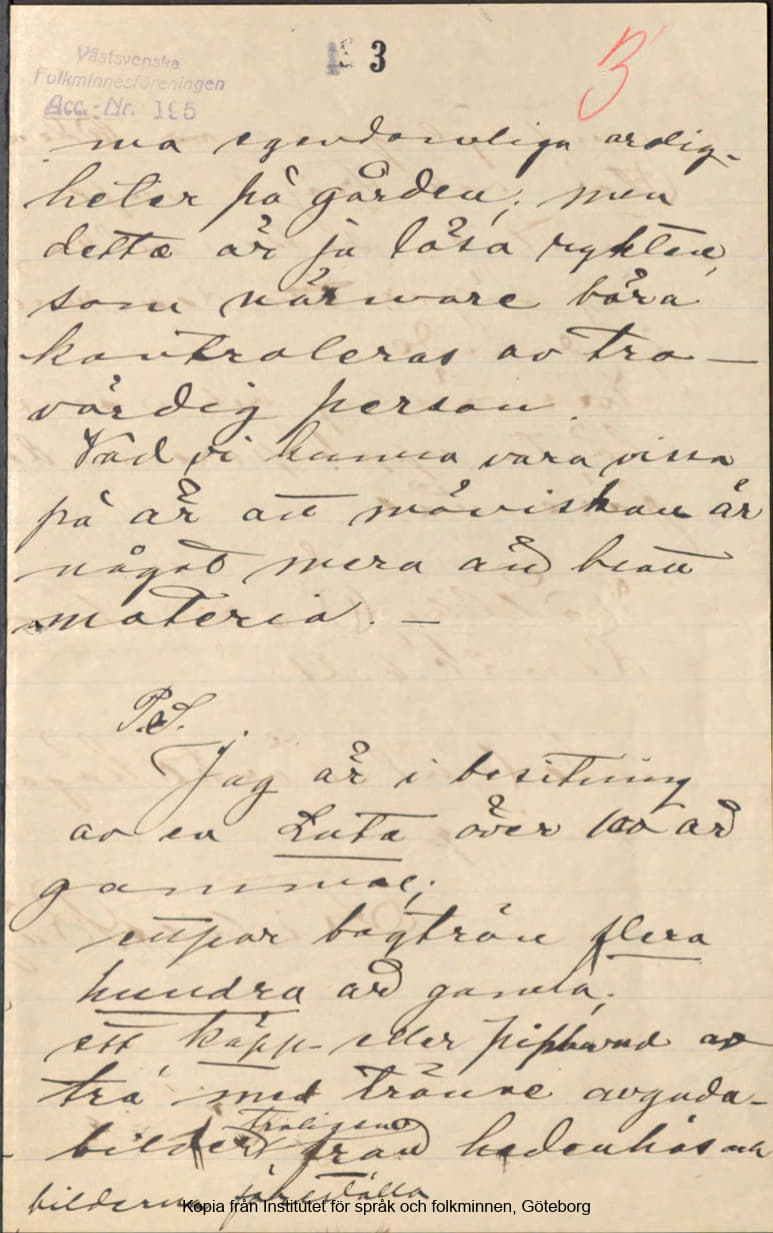 Västsvenska
Folkminnesföreningen
Acc.-Nr. 195
3
3
ma egendomliga ardig-
heter på gården; men
detta är ju lösa rykten,
som närmare böra
kontroleras av tro-
värdig person.
Vad vi kunna vara vissa
på är att mäniskan är
något mera än blott
materia. —
P.S.
Jag är i besitning
av en Luta över 100 år
gammal;
ett par bogträn flera
hundra år gamla;
ett käpp- eller av
trä med tränne avguda-
bilder troligen från hedenhös
bilderna föreställa
Kopia från Institutet för språk och folkminnen, Göteborg